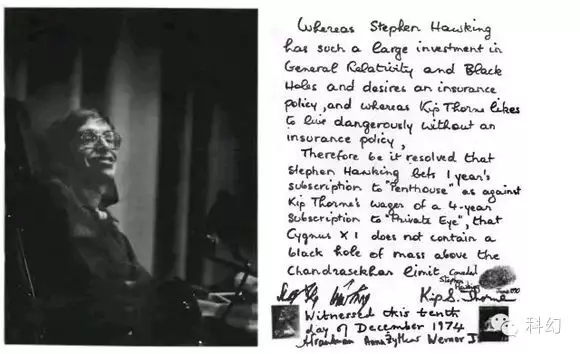 Whereas Stephen Hawking
has such a large investment in
General Relativity and Black
Holes and desires an insurance
policy, and whereas Kip Thorne likes
to live dangerously without an
insurance policy,
Therefore be it resolved that
Stephen Hawking bets 1 year's
subscription to "Penthouse" as against
Kip Thorne's wager of a 4-year
Subscription to "Private Eye", that
Cygnus X 1 does not contain a
black hole of mass above the
Chandrasekhar limit
Conceded
Stephen
Hawking
June
Kip S. Thorne
Witnessed this tenth
day of December 1974
Anna Żytkow Werner
科幻